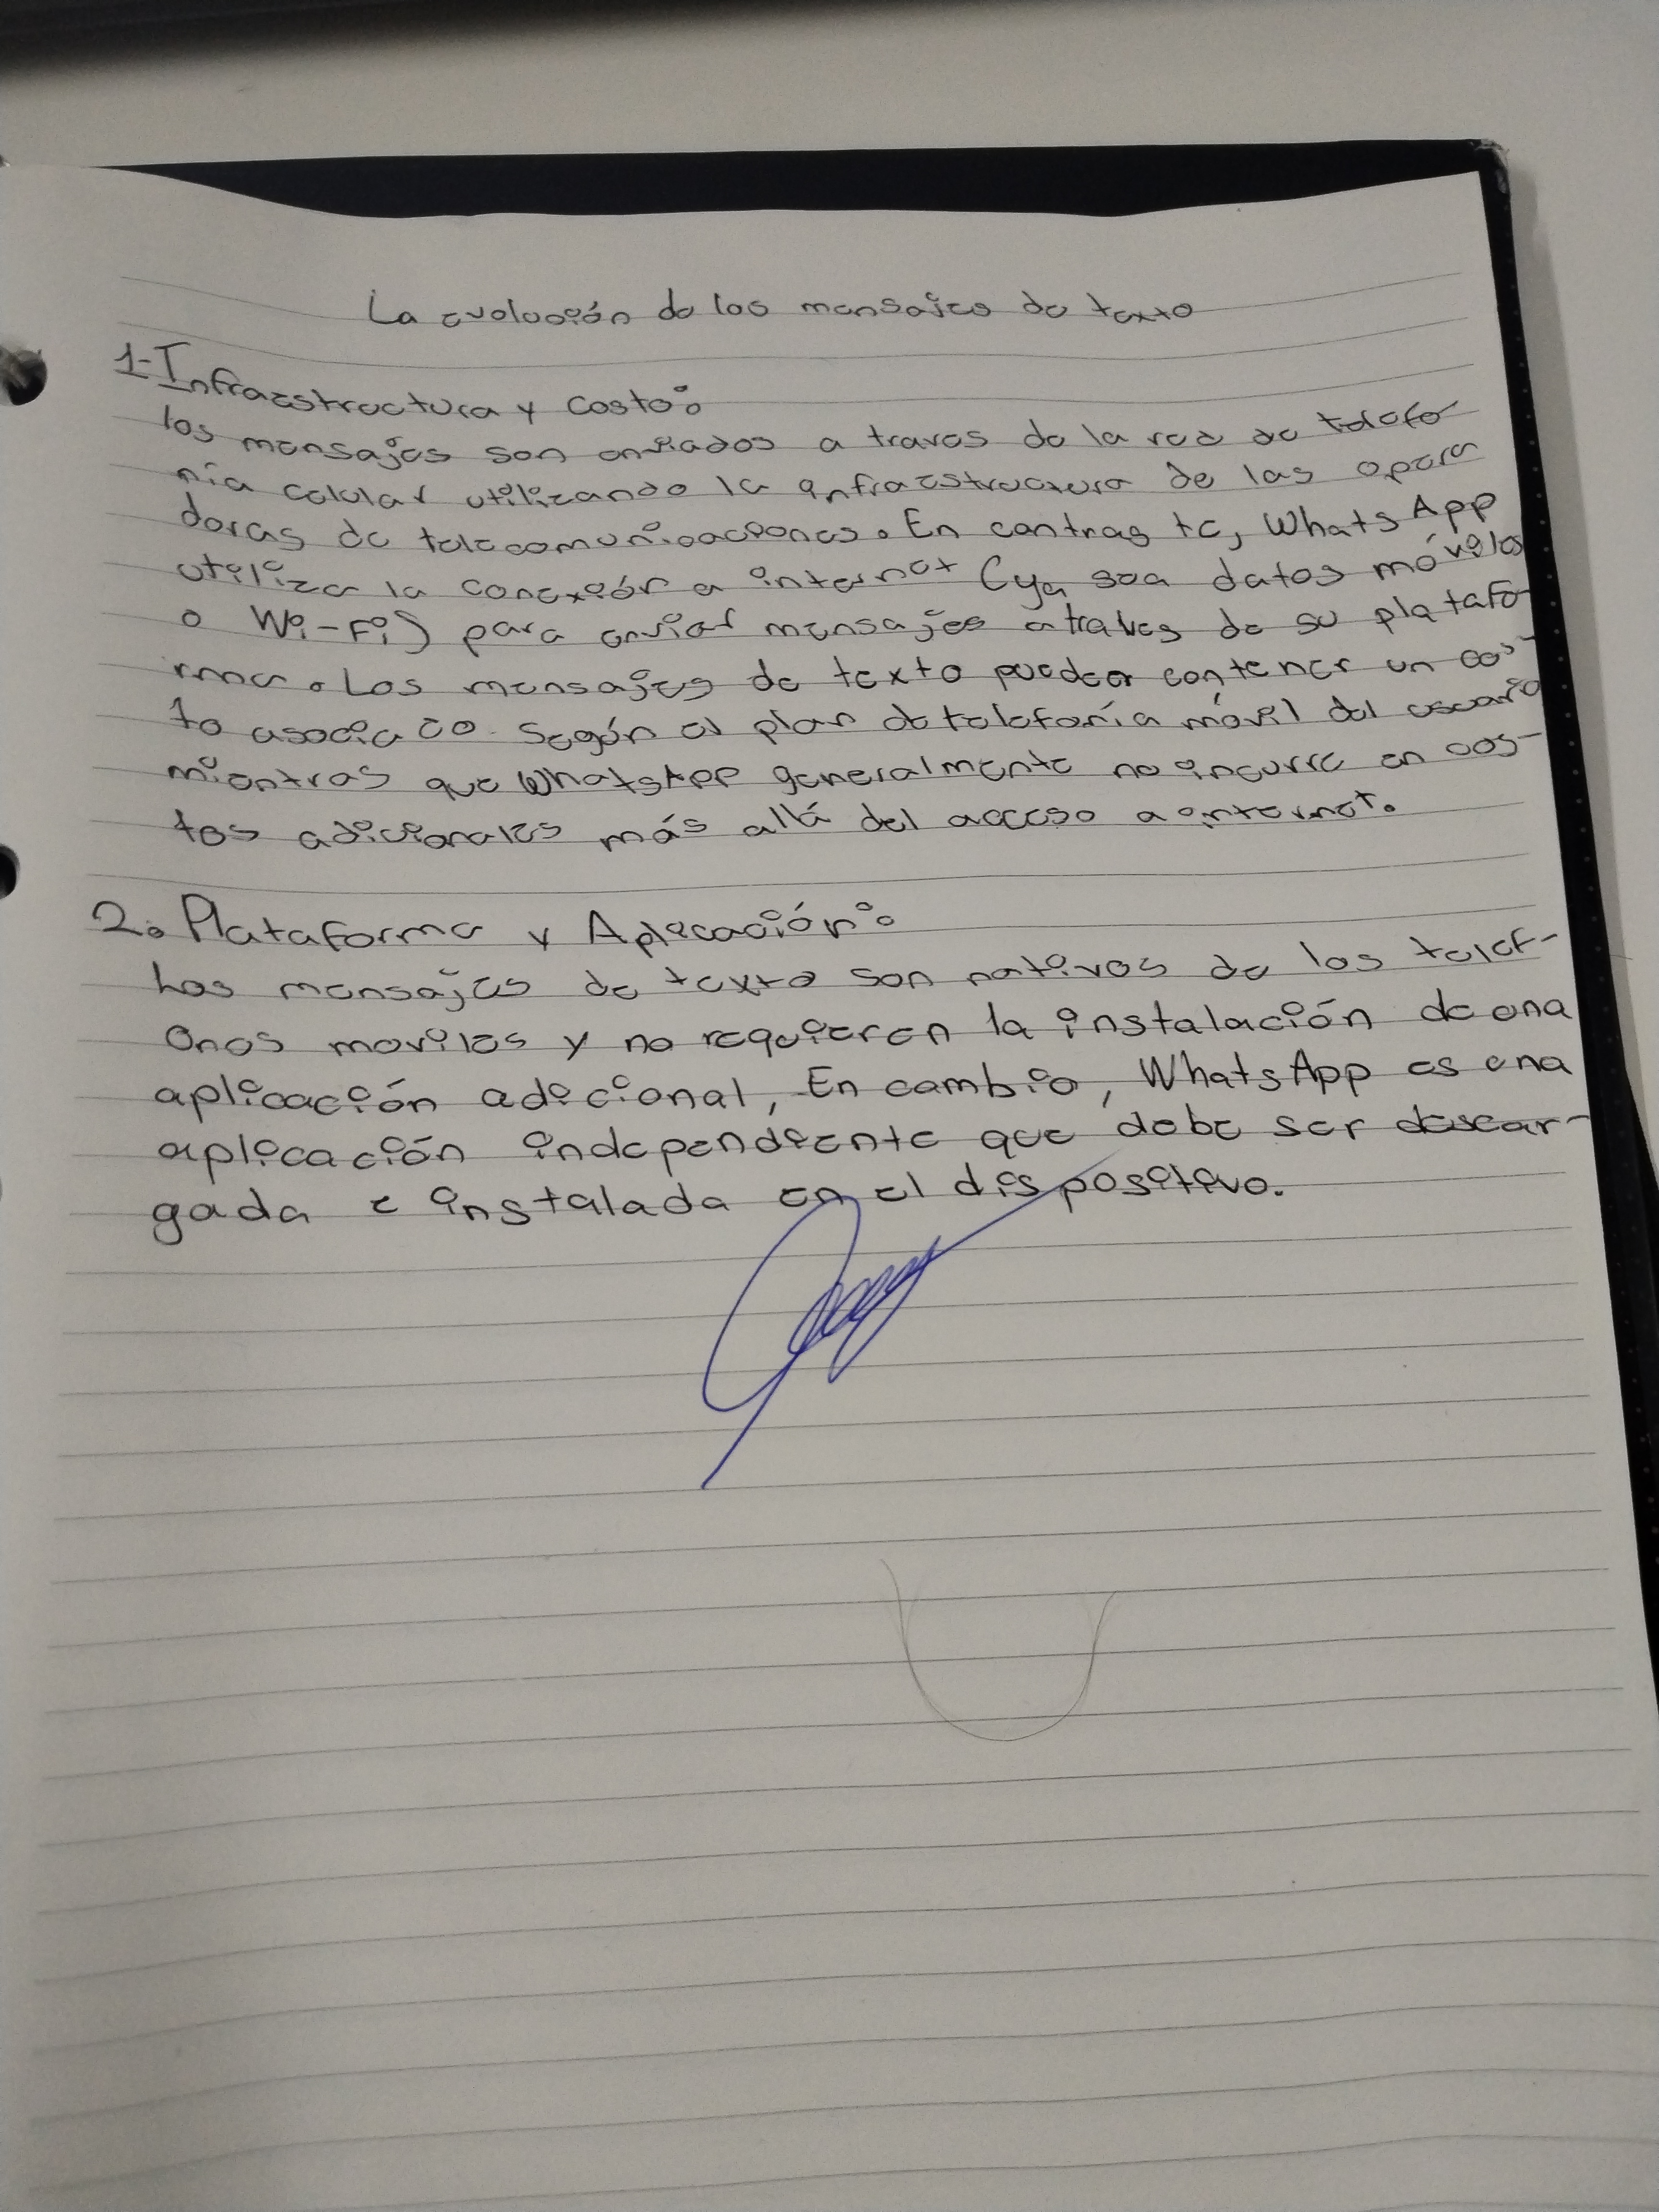 La evolución de los mensajes de texto
1-Infraestructura y costo:
los mensajes son enviados a traves de la red de telefo
nía celular utilizando la infraestructura de las opera
doras de telecomunicaciones. En contraste, WhatsApp
utiliza la conexión a internet (ya sea datos móviles
o Wi-Fi) para enviar mensajes a traves de su platafo-
rma. Los mensajes de texto pueden contener un cos-
to asociado según el plan de telefonía móvil del usuario
mientras que WhatsApp generalmente no incurre en cos-
tos adicionales más allá del acceso a internet.
2. Plataforma y Aplicación:
Los mensajes de texto son nativos de los telef-
onos moviles y no requieren la instalación de una
aplicación adicional, En cambio, WhatsApp es una
aplicación independiente que debe ser descar-
gada e instalada en el dispositivo.